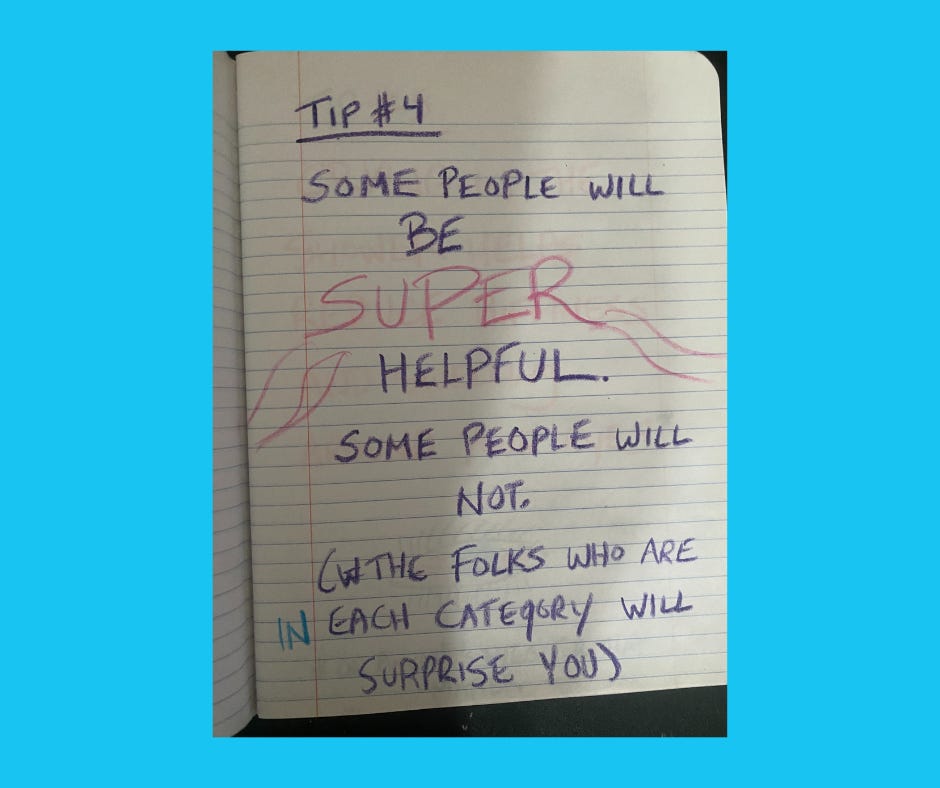 TIP #4
SOME PEOPLE WILL
BE
SUPER
HELPFUL.
SOME PEOPLE WILL
NOT.
(THE FOLKS WHO ARE
IN EACH CATEGORY WILL
SURPRISE YOU)